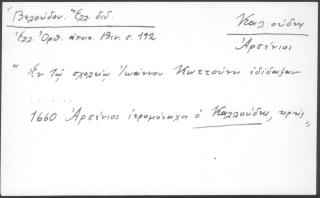 Βελούδου. Ἑλλ. διδ.
Ἑλλ. Ὀρθ. ἀποικ. Βεν. σ. 192
Καλλούδης
Ἀρσένιος
"Ἐν τῷ σχολείῳ Ἰωάννου Κωττούνη ἐδίδαξαν
. . . . . . .
1660 Ἀρσένιος ἱερομόναχος ὁ Καλλούδης, κρής"